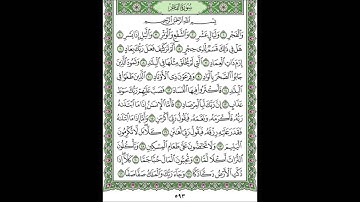 سُورَةُ الفَجْرِ
بِسْمِ اللَّهِ الرَّحْمَٰنِ الرَّحِيمِ
وَالْفَجْرِ ١ وَلَيَالٍ عَشْرٍ ٢ وَالشَّفْعِ وَالْوَتْرِ ٣ وَاللَّيْلِ إِذَا يَسْرِ ٤
هَلْ فِي ذَٰلِكَ قَسَمٌ لِّذِي حِجْرٍ ٥ أَلَمْ تَرَ كَيْفَ فَعَلَ رَبُّكَ بِعَادٍ ٦
إِرَمَ ذَاتِ الْعِمَادِ ٧ الَّتِي لَمْ يُخْلَقْ مِثْلُهَا فِي الْبِلَادِ ٨ وَثَمُودَ الَّذِينَ
جَابُوا الصَّخْرَ بِالْوَادِ ٩ وَفِرْعَوْنَ ذِي الْأَوْتَادِ ١٠ الَّذِينَ طَغَوْا فِي
الْبِلَادِ ١١ فَأَكْثَرُوا فِيهَا الْفَسَادَ ١٢ فَصَبَّ عَلَيْهِمْ رَبُّكَ سَوْطَ
عَذَابٍ ١٣ إِنَّ رَبَّكَ لَبِالْمِرْصَادِ ١٤ فَأَمَّا الْإِنسَانُ إِذَا مَا ابْتَلَاهُ
رَبُّهُ فَأَكْرَمَهُ وَنَعَّمَهُ فَيَقُولُ رَبِّي أَكْرَمَنِ ١٥ وَأَمَّا إِذَا مَا ابْتَلَاهُ
فَقَدَرَ عَلَيْهِ رِزْقَهُ فَيَقُولُ رَبِّي أَهَانَنِ ١٦ كَلَّا بَل لَّا تُكْرِمُونَ
الْيَتِيمَ ١٧ وَلَا تَحَاضُّونَ عَلَىٰ طَعَامِ الْمِسْكِينِ ١٨ وَتَأْكُلُونَ
التُّرَاثَ أَكْلًا لَّمًّا ١٩ وَتُحِبُّونَ الْمَالَ حُبًّا جَمًّا ٢٠ كَلَّا إِذَا
دُكَّتِ الْأَرْضُ دَكًّا دَكًّا ٢١ وَجَاءَ رَبُّكَ وَالْمَلَكُ صَفًّا صَفًّا ٢٢
٥٩٣